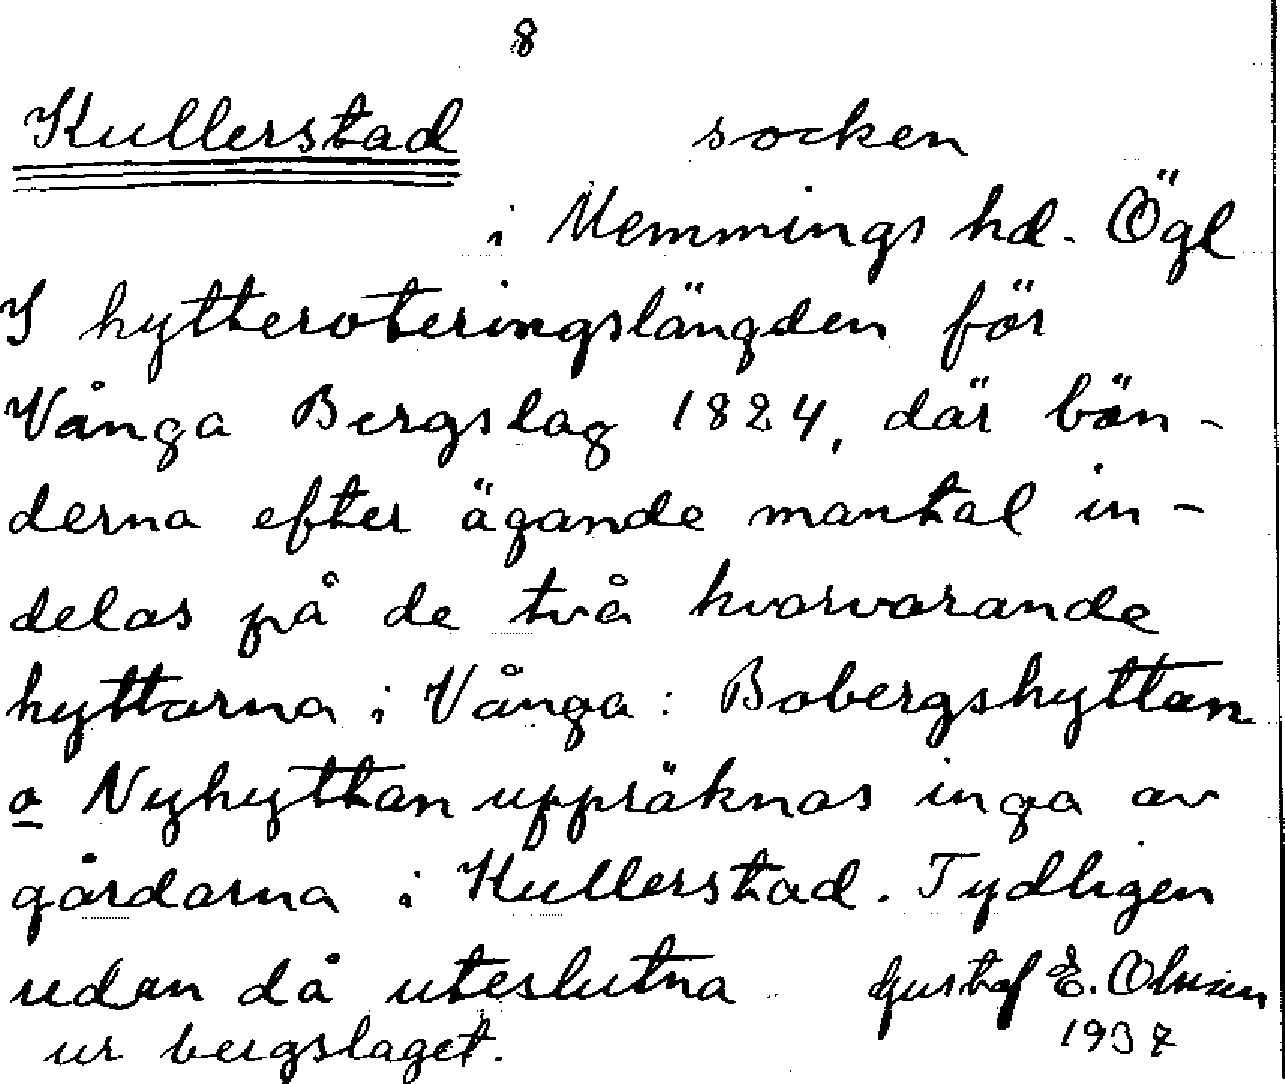 8
Kullerstad socken
i Memmings hd. Ögl
I hytteroteringslängden för
Vånga Bergslag 1824, där bön-
derna efter ägande mantal in-
delas på de två kvarvarande
hyttorna i Vånga: Bobergshyttan
o Nyhyttan uppräknas inga av
gårdarna i Kullerstad. Tydligen
redan då uteslutna Gustaf E. Olsson
ur bergslaget. 1937